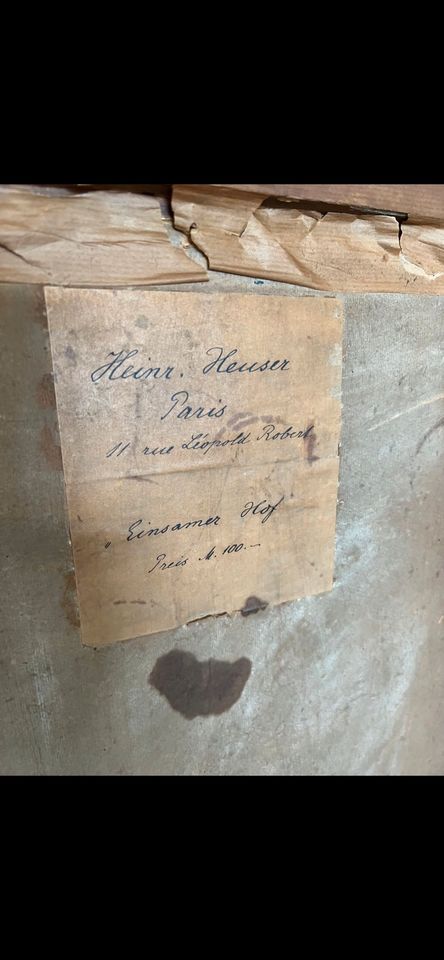 Heinr. Heuser
Paris
11 rue Léopold Robert
„Einsamer Hof
Preis M. 100.—